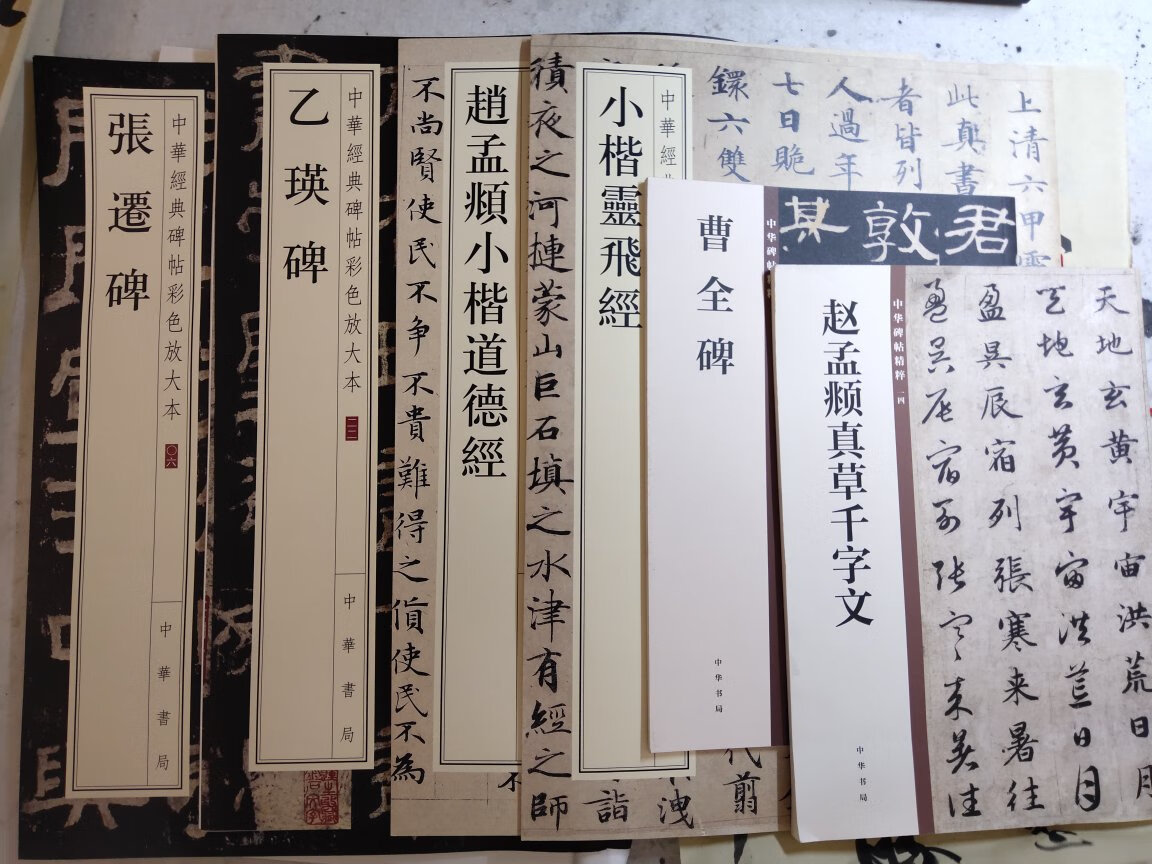 張遷碑
中華經典碑帖彩色放大本
〇六
中華書局
乙瑛碑
中華經典碑帖彩色放大本
二二
中華書局
不尚賢使民不争不貴難得之貨使民不為
趙孟頫小楷道德經
積夜之河揵蒙山巨石填之水津有經之師
小楷靈飛經
中華經
上清六甲靈
此真書
者皆列
人過年
七日跪
鐶六雙
曹全碑
中华碑帖
中华书局
君
敦
其
赵孟頫真草千字文
中华碑帖精粹
一四
中华书局
天地玄黄宇宙洪荒日月
天地玄黄宇宙洪荒日月
盈昃辰宿列張寒来暑往
盈昃辰宿列張寒来暑往
代翦
洩
詣